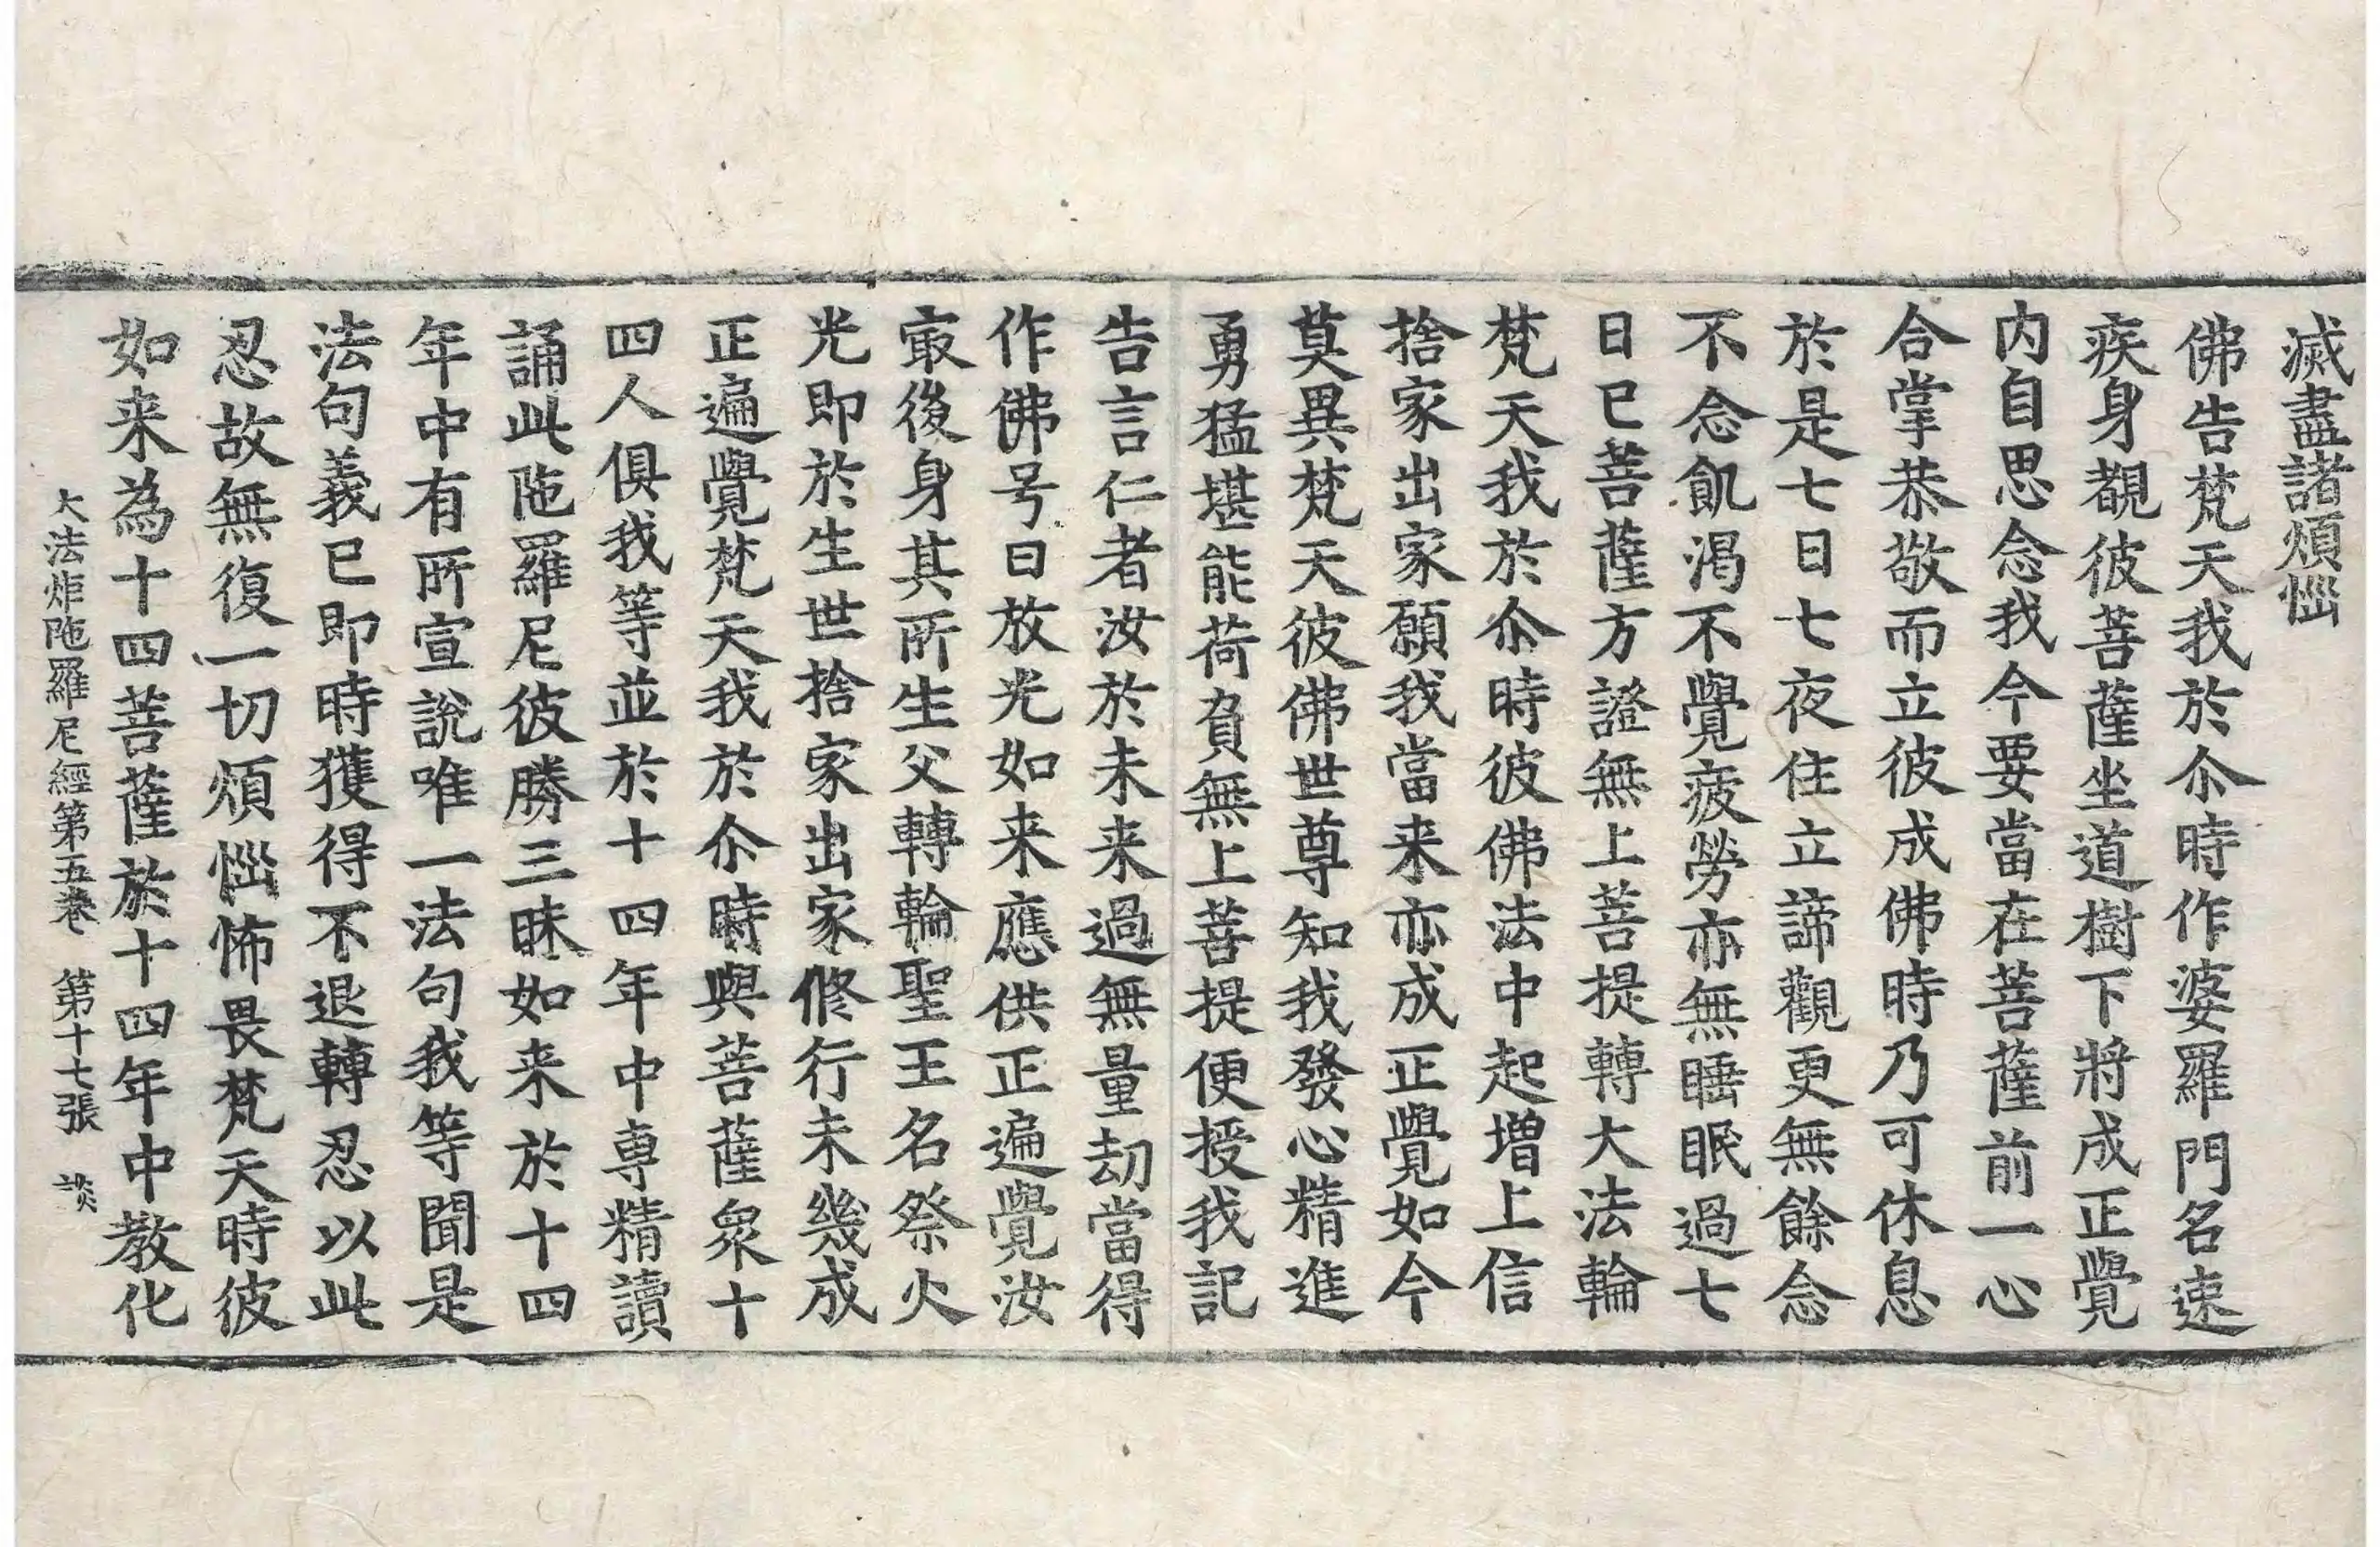 滅盡諸煩惱
佛告梵天我於尒時作婆羅門名速
疾身覩彼菩薩坐道樹下將成正覺
内自思念我今要當在菩薩前一心
合掌恭敬而立彼成佛時乃可休息
於是七日七夜住立諦觀更無餘念
不念飢渴不覺疲勞亦無睡眠過七
日已菩薩方證無上菩提轉大法輪
梵天我於尒時彼佛法中起增上信
捨家出家願我當来亦成正覺如今
莫異梵天彼佛世尊知我發心精進
勇猛堪能荷負無上菩提便授我記
告言仁者汝於未来過無量劫當得
作佛号曰放光如来應供正遍覺汝
㝡後身其所生父轉輪聖王名祭火
光即於生世捨家出家修行未幾成
正遍覺梵天我於尒時與菩薩衆十
四人俱我等並於十四年中專精讀
誦此陁羅尼彼勝三昧如来於十四
年中有所宣說唯一法句我等聞是
法句義已即時獲得不退轉忍以此
忍故無復一切煩惱怖畏梵天時彼
如来為十四菩薩於十四年中教化
大法炬陁羅尼經第五卷 第十七張 談